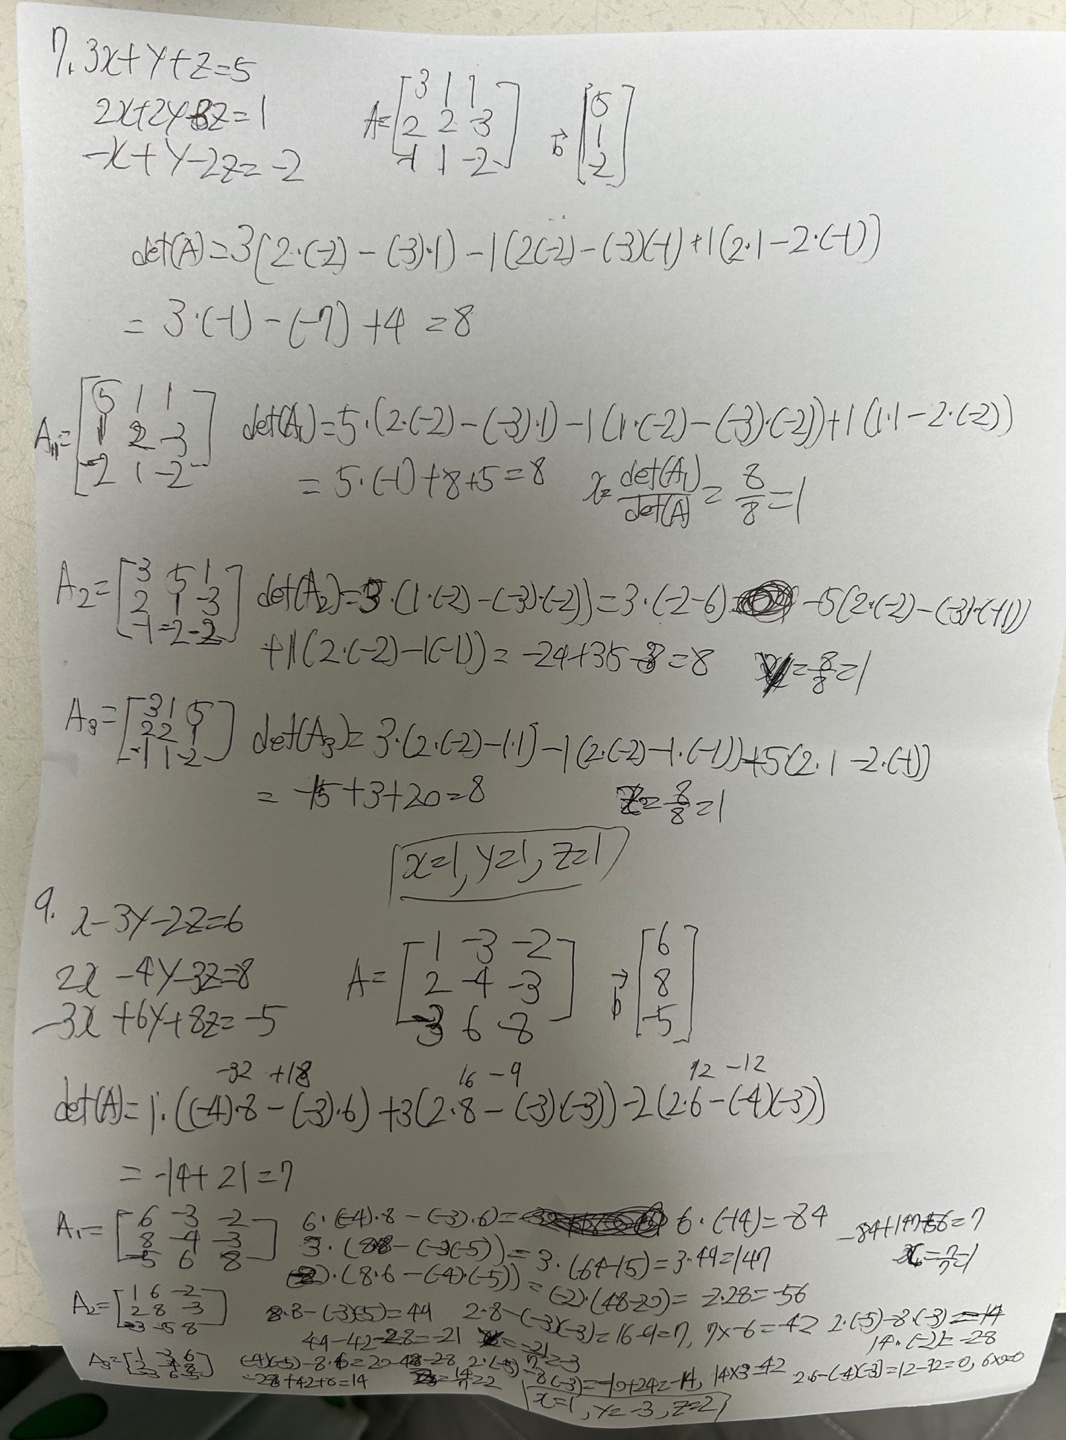 7. 3x+y+z=5
2x+2y-3z=1
-x+y-2z=-2
A=[3 1 1
2 2 -3
-1 1 -2]
b [5
1
-2]
det(A)=3(2·(-2)-(-3)·1)-1(2(-2)-(-3)(-1)+1(2·1-2·(-1))
=3·(-1)-(-7)+4=8
A₁=[5 1 1
1 2 -3
-2 1 -2]
det(A₁)=5·(2·(-2)-(-3)·1)-1(1·(-2)-(-3)·(-2))+1(1·1-2·(-2))
=5·(-1)+8+5=8 x=det(A₁)/det(A)=8/8=1
A₂=[3 5 1
2 1 -3
-1 -2 -2]
det(A₂)=3·(1·(-2)-(-3)·(-2))=3·(-2-6) -5(2·(-2)-(-3)·(-1))
+1(2·(-2)-1(-1))=-24+35-3=8 y=8/8=1
A₃=[3 1 5
2 2 1
-1 1 -2]
det(A₃)=3·(2·(-2)-1·1)-1(2·(-2)-1·(-1))+5(2·1-2·(-1))
=-15+3+20=8 z=8/8=1
x=1, y=1, z=1
9. x-3y-2z=6
2x-4y-3z=8
-3x+6y+8z=-5
A=[1 -3 -2
2 -4 -3
-3 6 8]
b [6
8
-5]
-32 +18 16 -9 12 -12
det(A)=1·((-4)·8-(-3)·6)+3(2·8-(-3)·(-3))-2(2·6-(-4)(-3))
=-14+21=7
A₁=[6 -3 -2
8 -4 -3
-5 6 8]
6·(-4)·8-(-3)·6)= 6·(-14)=-84
3·(8·8-(-3)(-5))=3·(64-15)=3·49=147
(-2)·(8·6-(-4)(-5))=(-2)·(48-20)=-2·28=-56
-84+147-56=7
x=7/7=1
A₂=[1 6 -2
2 8 -3
-3 -5 8]
8·8-(-3)(-5)=49 2·8-(-3)(-3)=16-9=7, 7x-6=-42 2·(-5)-8·(-3)=14
49-42-28=-21 y=-21/7=-3 14·(-2)=-28
A₃=[1 -3 6
2 -4 8
-3 6 -5]
(-4)(-5)-8·6=20-48=-28 2·(-5)-8(-3)=-10+24=14, 14x3=42 2·6-(-4)(-3)=12-12=0, 6x0=0
-28+42+0=14 z=14/7=2
x=1, y=-3, z=2